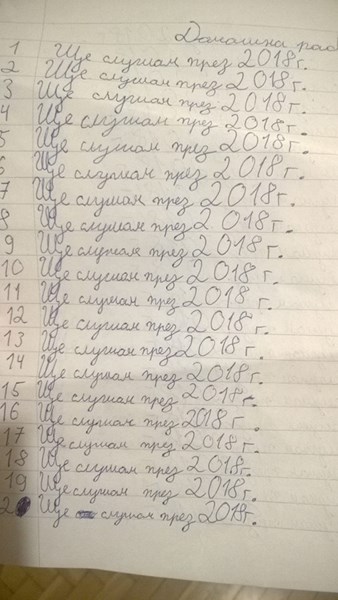 Домашна раб
1 Ще слушам през 2018г.
2 Ще слушам през 2018г.
3 Ще слушам през 2018г.
4 Ще слушам през 2018г.
5 Ще слушам през 2018г.
6 Ще слушам през 2018г.
7 Ще слушам през 2018г.
8 Ще слушам през 2018г.
9 Ще слушам през 2018г.
10 Ще слушам през 2018г.
11 Ще слушам през 2018г.
12 Ще слушам през 2018г.
13 Ще слушам през 2018г.
14 Ще слушам през 2018г.
15 Ще слушам през 2018г.
16 Ще слушам през 2018г.
17 Ще слушам през 2018г.
18 Ще слушам през 2018г.
19 Ще слушам през 2018г.
20 Ще слушам през 2018г.